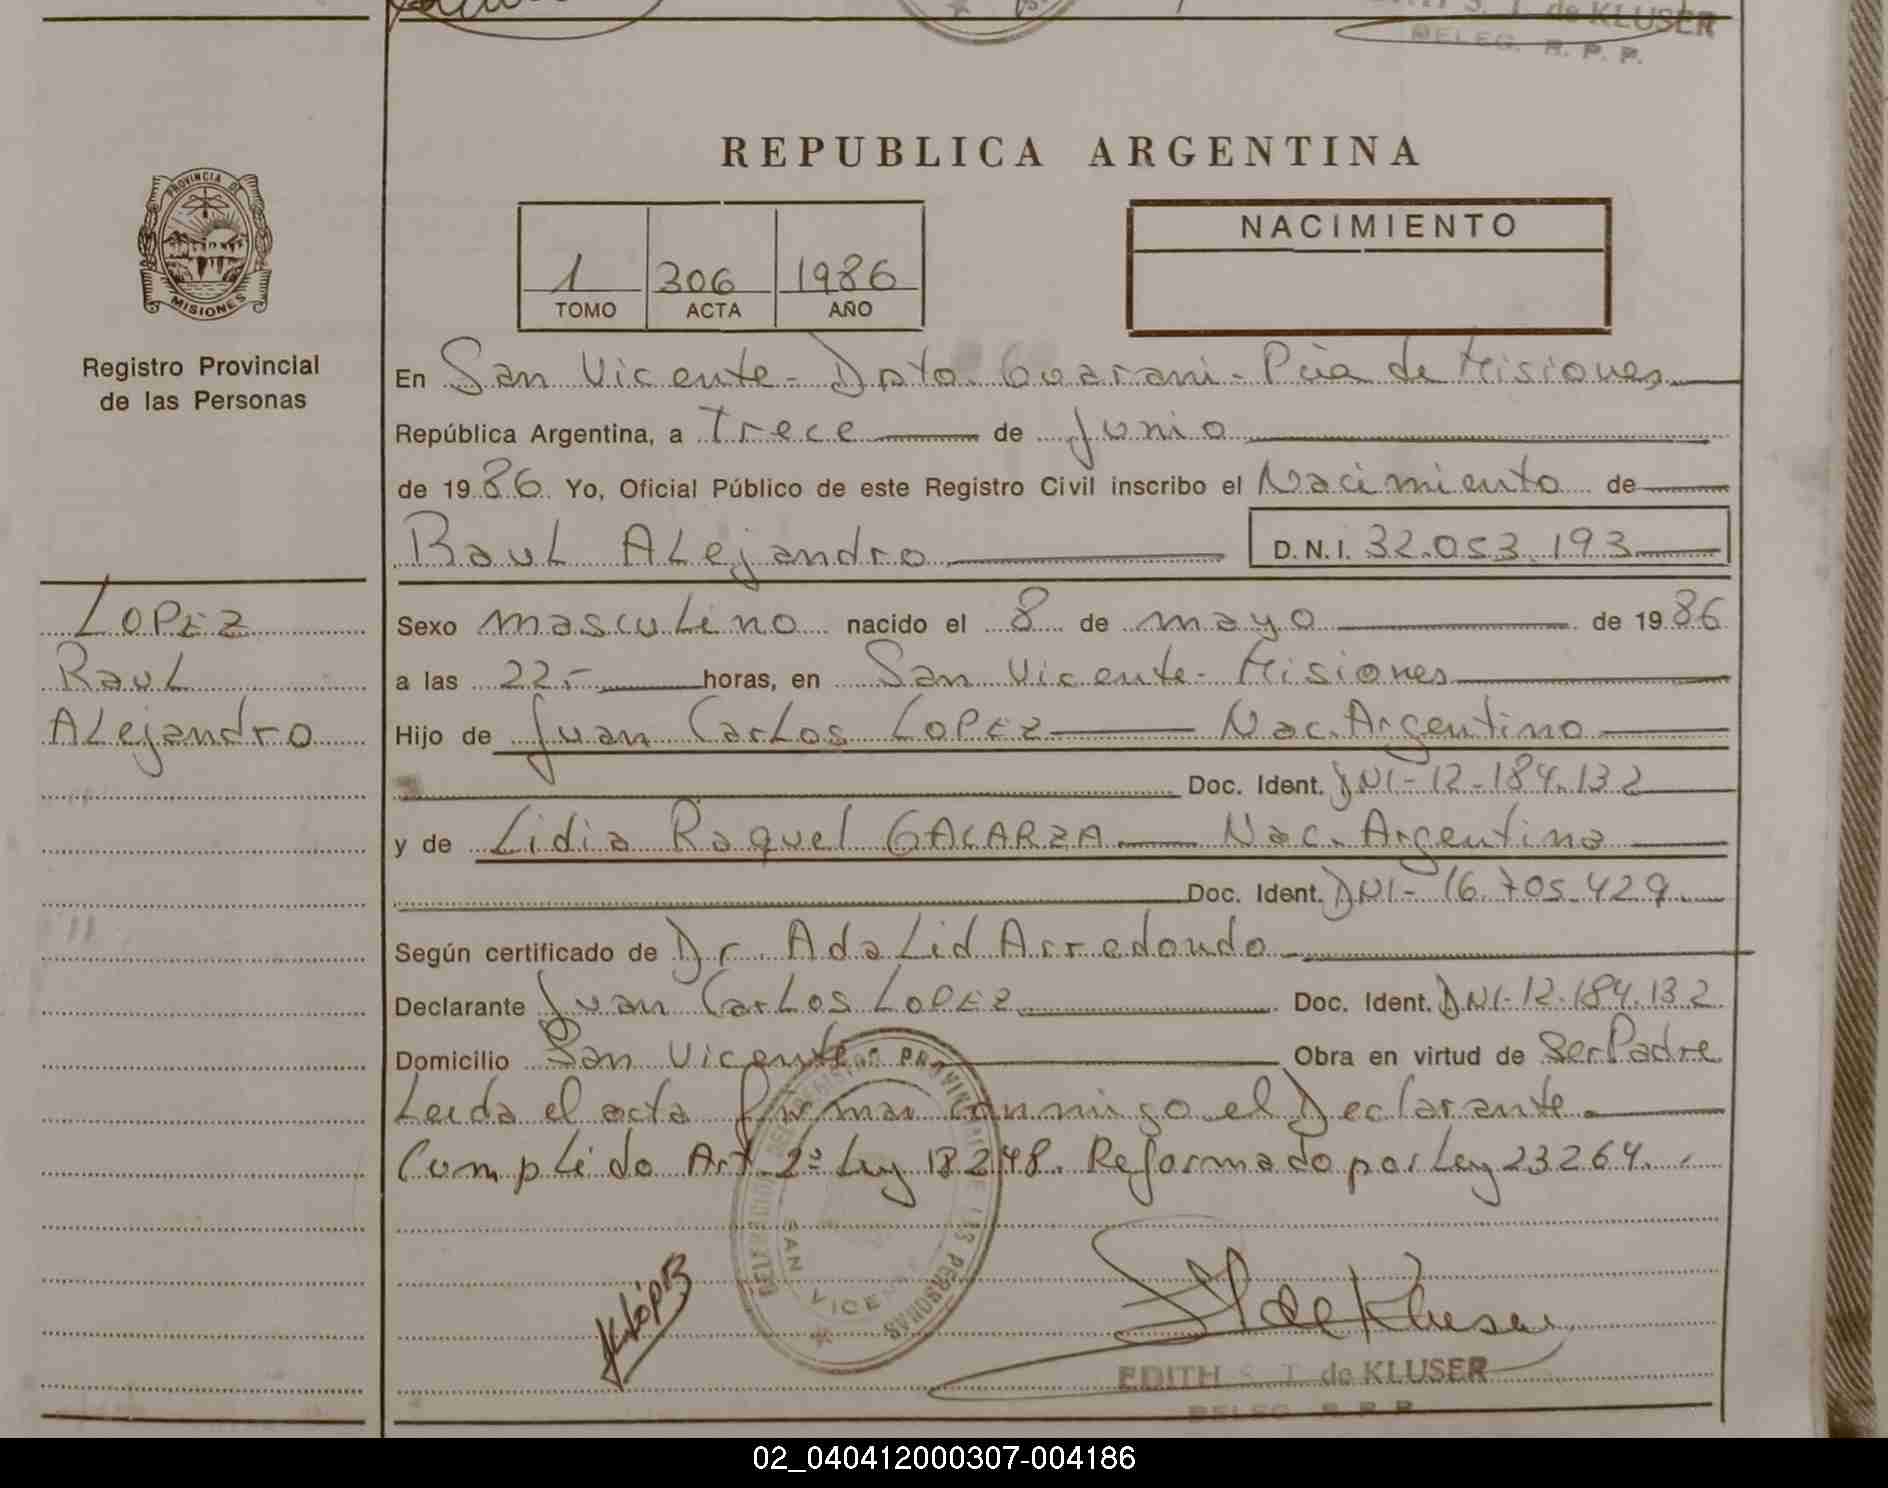 de KLUSER
DELEG. R. P. P.
REPUBLICA ARGENTINA
PROVINCIA DE
MISIONES
Registro Provincial
de las Personas
1 306 1986
TOMO ACTA AÑO
NACIMIENTO
En San Vicente - Dpto. Guarani - Pcia de Misiones
República Argentina, a Trece de Junio
de 1986 Yo, Oficial Público de este Registro Civil inscribo el Nacimiento de
Raul Alejandro D.N.I. 32.053.193
LOPEZ
Raul
Alejandro
Sexo masculino nacido el 8 de mayo de 1986
a las 22.- horas, en San Vicente - Misiones
Hijo de Juan Carlos LOPEZ Nac. Argentino
Doc. Ident. DNI-12.184.132
y de Lidia Raquel GALARZA Nac. Argentina
Doc. Ident. DNI-16.705.429
Según certificado de Dr. Adalid Arredondo
Declarante Juan Carlos LOPEZ Doc. Ident. DNI-12.184.132
Domicilio San Vicente Obra en virtud de Ser Padre
Leida el acta firman conmigo el Declarante.
Cumplido Art. 2º Ley 18248. Reformado por Ley 23264.
DELEGACION REGISTRO PROVINCIAL DE LAS PERSONAS
SAN VICENTE
López
de Kluser
EDITH S. T. de KLUSER
DELEG. R. P. P.
02_040412000307-004186